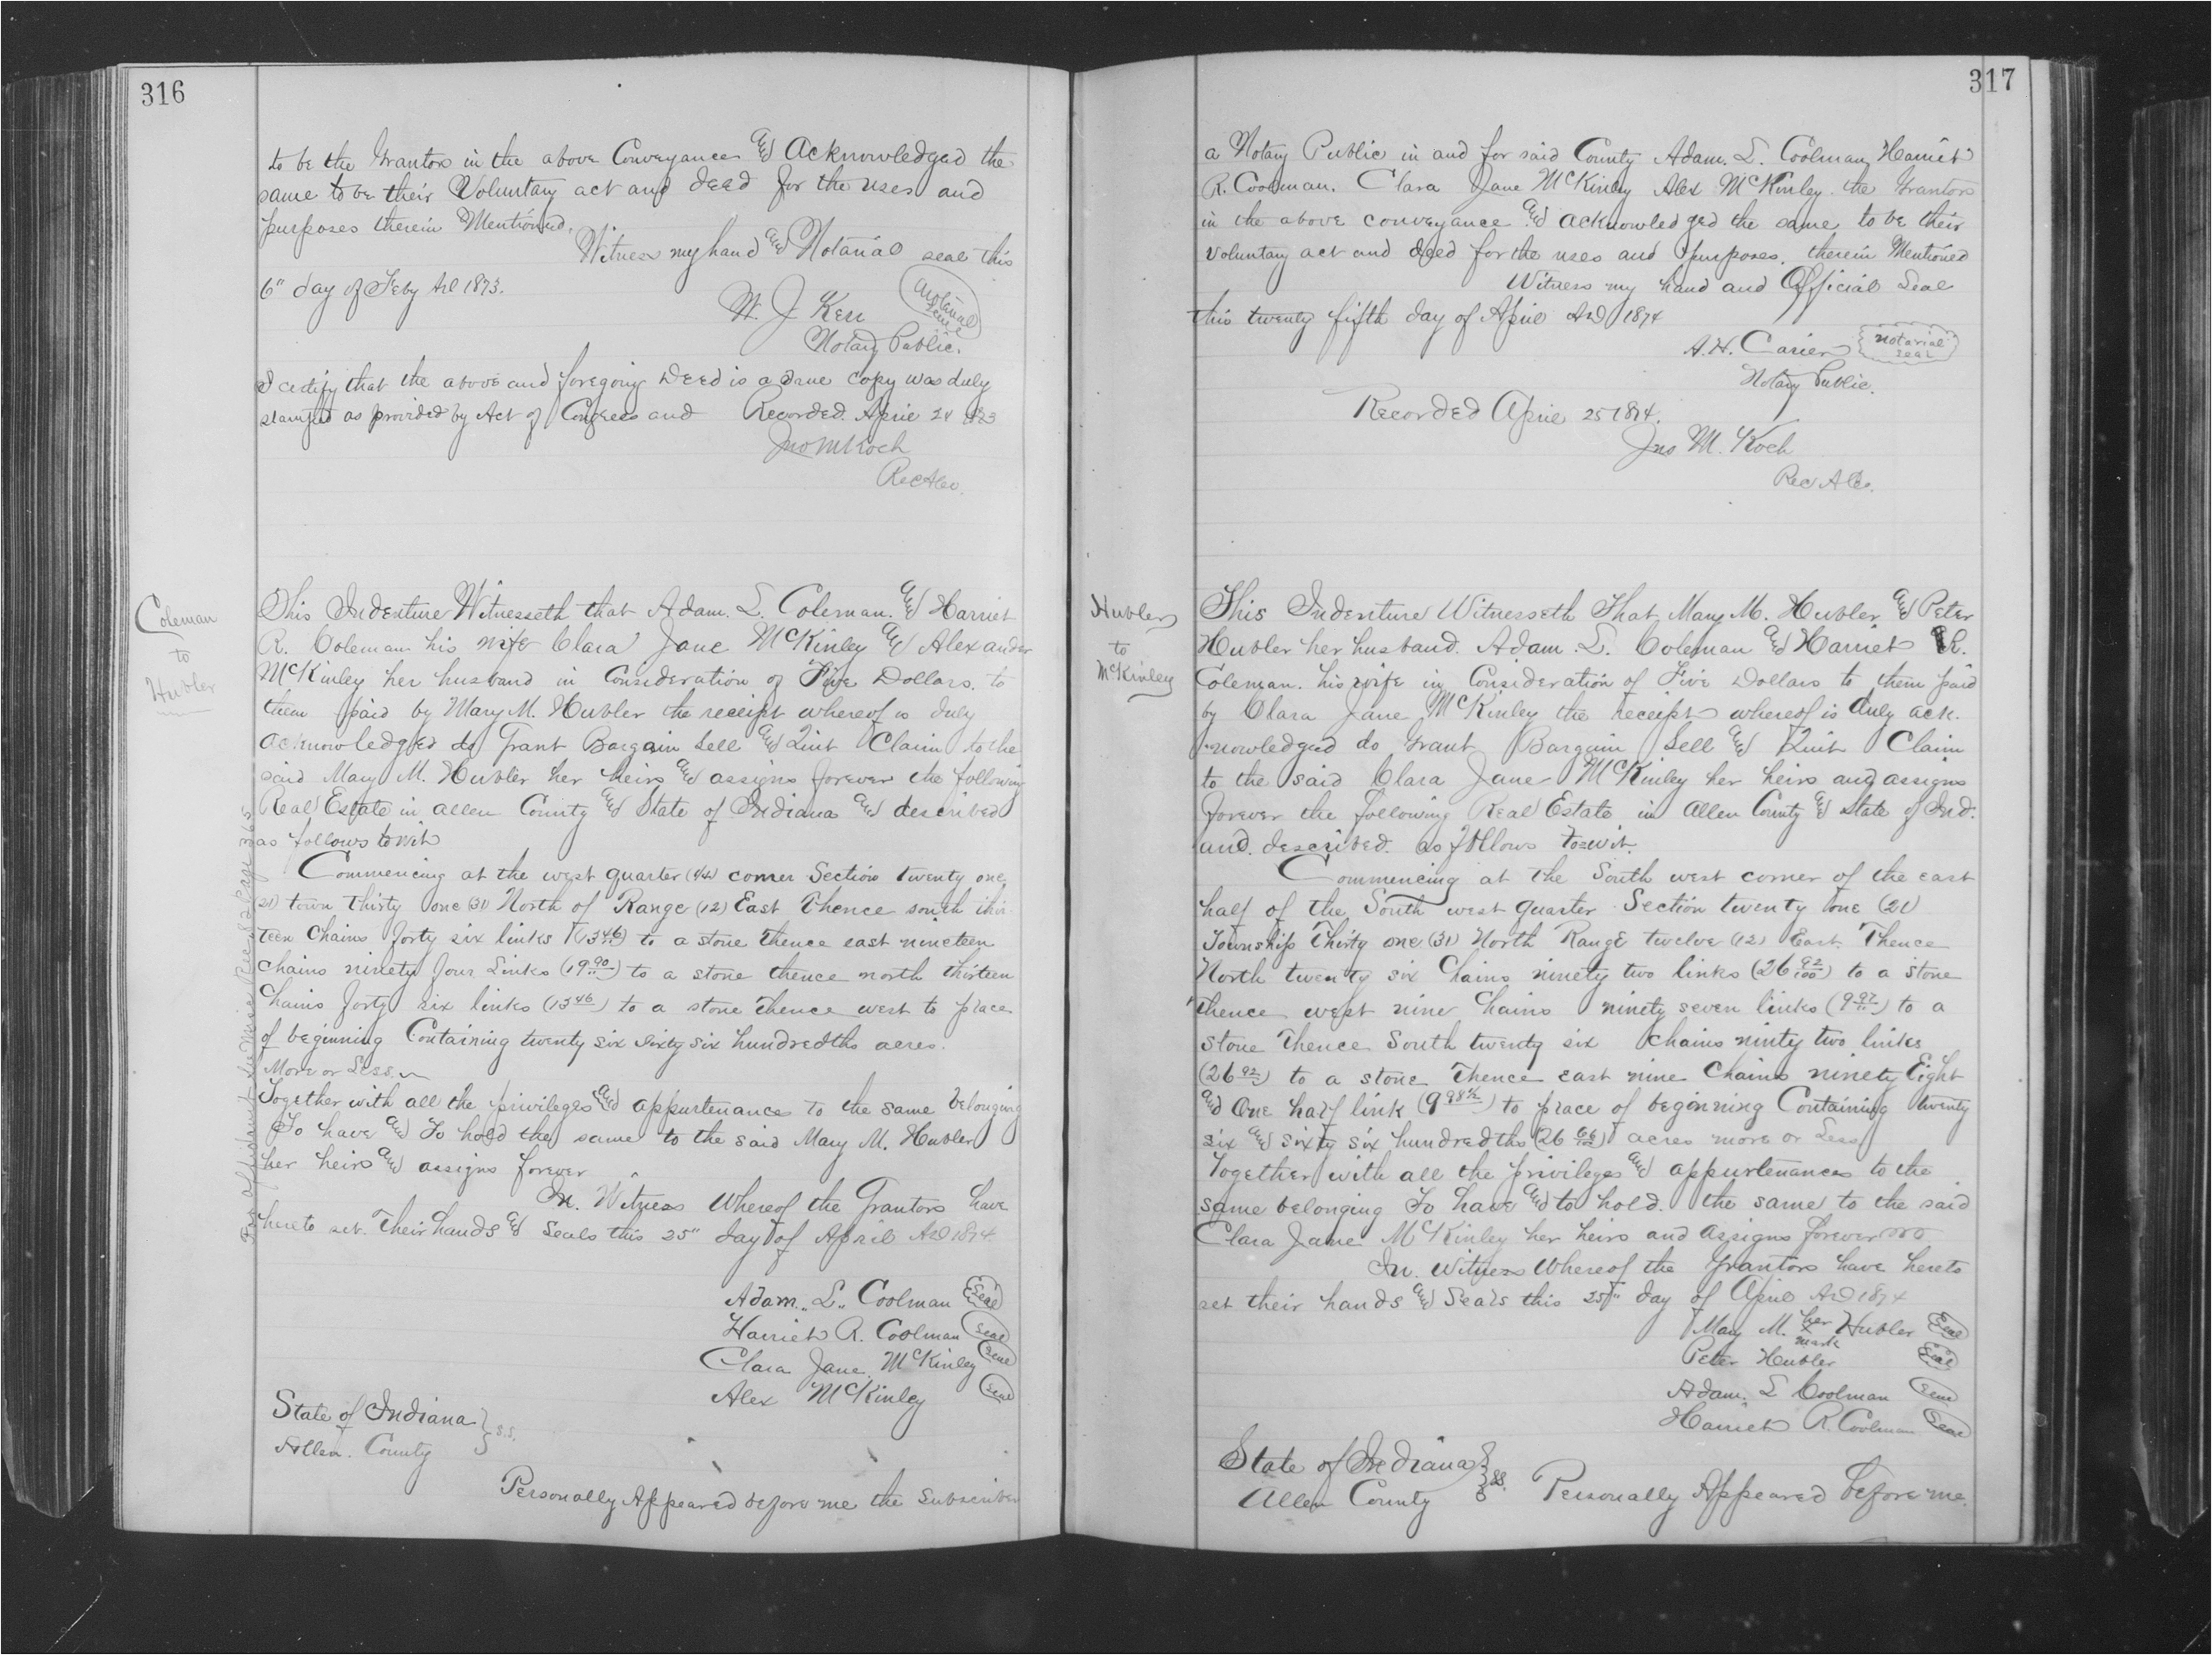 316
to be the Grantors in the above Conveyance and Acknowledged the
same to be their Voluntary act and deed for the uses and
purposes therein Mentioned.
Witness my hand and Notarial seal this
6" day of Feby AD 1873.
W. J Kerr
Notarial
Seal
Notary Public.
I certify that the above and foregoing Deed is a true copy was duly
stamped as provided by Act of Congress and Recorded April 24 1873
Jno M Koch
Rec Aleo.
Coleman
to
Hubler
This Indenture Witnesseth that Adam. L. Coleman. and Harriet
R. Coleman his wife Clara Jane McKinley and Alexander
McKinley her husband in Consideration of Five Dollars. to
them paid by Mary M. Hubler the receipt whereof is duly
acknowledged do Grant Bargain Sell and Quit Claim to the
said Mary M. Hubler her heirs and assigns forever the following
Real Estate in Allen County and State of Indiana and described
as follows to wit
Commencing at the west quarter (1/4) corner Section twenty one
(21) town Thirty one (31) North of Range (12) East Thence south thir
teen Chains forty six links (13 46) to a stone Thence east nineteen
Chains ninety four Links (19 90) to a stone thence north thirteen
Chains forty six links (13 46) to a stone Thence west to place
of beginning Containing twenty six sixty six hundredths acres.
More or Less.
Together with all the privileges and appurtenances to the same belonging
To have and To hold the same to the said Mary M. Hubler
her heirs and assigns forever
In. Witness Whereof the Grantors have
hereto set. Their hands and Seals this 25" day of April AD 1874
Adam.. L.. Coolman Seal
Harriet R. Coolman Seal
Clara Jane McKinley Seal
Alex McKinley Seal
State of Indiana
Allen. County } S.S.
Personally Appeared before me the Subscriber
For affidavit See Misc Rec 82 Page 365
317
a Notary Public in and for said County Adam. L. Coolman Harriet
R. Coolman. Clara Jane McKinley Alex McKinley. the Grantors
in the above conveyance and acknowledged the same to be their
voluntary act and deed for the uses and purposes. therein Mentioned
Witness my hand and Official Seal
this twenty fifth day of April AD 1874
A. H. Carier
Notarial
Seal
Notary Public.
Recorded April 25 1874.
Jno M. Koch
Rec Al Co.
Hubler
to
McKinley
This Indenture Witnesseth That Mary M. Hubler and Peter
Hubler her husband. Adam. L. Coleman and Harriet R.
Coleman. his wife in Consideration of Five Dollars to them paid
by Clara Jane McKinley the receipt whereof is duly ack.
nowledged do Grant Bargain Sell and Quit Claim
to the said Clara Jane McKinley her heirs and assigns
forever the following Real Estate in Allen County and State of Ind.
and. described. as follows to=wit.
Commencing at the South west corner of the east
half of the South west quarter Section twenty one (21)
Township Thirty one (31) North Range twelve (12) East. Thence
North twenty six Chains ninety two links (26 92/100) to a stone
thence west nine Chains ninety seven links (9 97) to a
stone Thence South twenty six Chains ninty two links
(26 92) to a stone Thence east nine Chains ninety Eight
and one half link (9 98 1/2) to place of beginning Containing twenty
six and sixty six hundredths (26 66) acres more or Less
Together with all the privileges and appurtenances to the
same belonging To have and to hold. the same to the said
Clara Jane McKinley her heirs and assigns forever
In. witness Whereof the Grantors have hereto
set their hands and Seals this 25" day of April AD 1874
Mary M. her x mark Hubler Seal
Peter Hubler Seal
Adam. L Coolman Seal
Harriet R. Coolman Seal
State of Indiana
Allen County } SS. Personally Appeared before me.